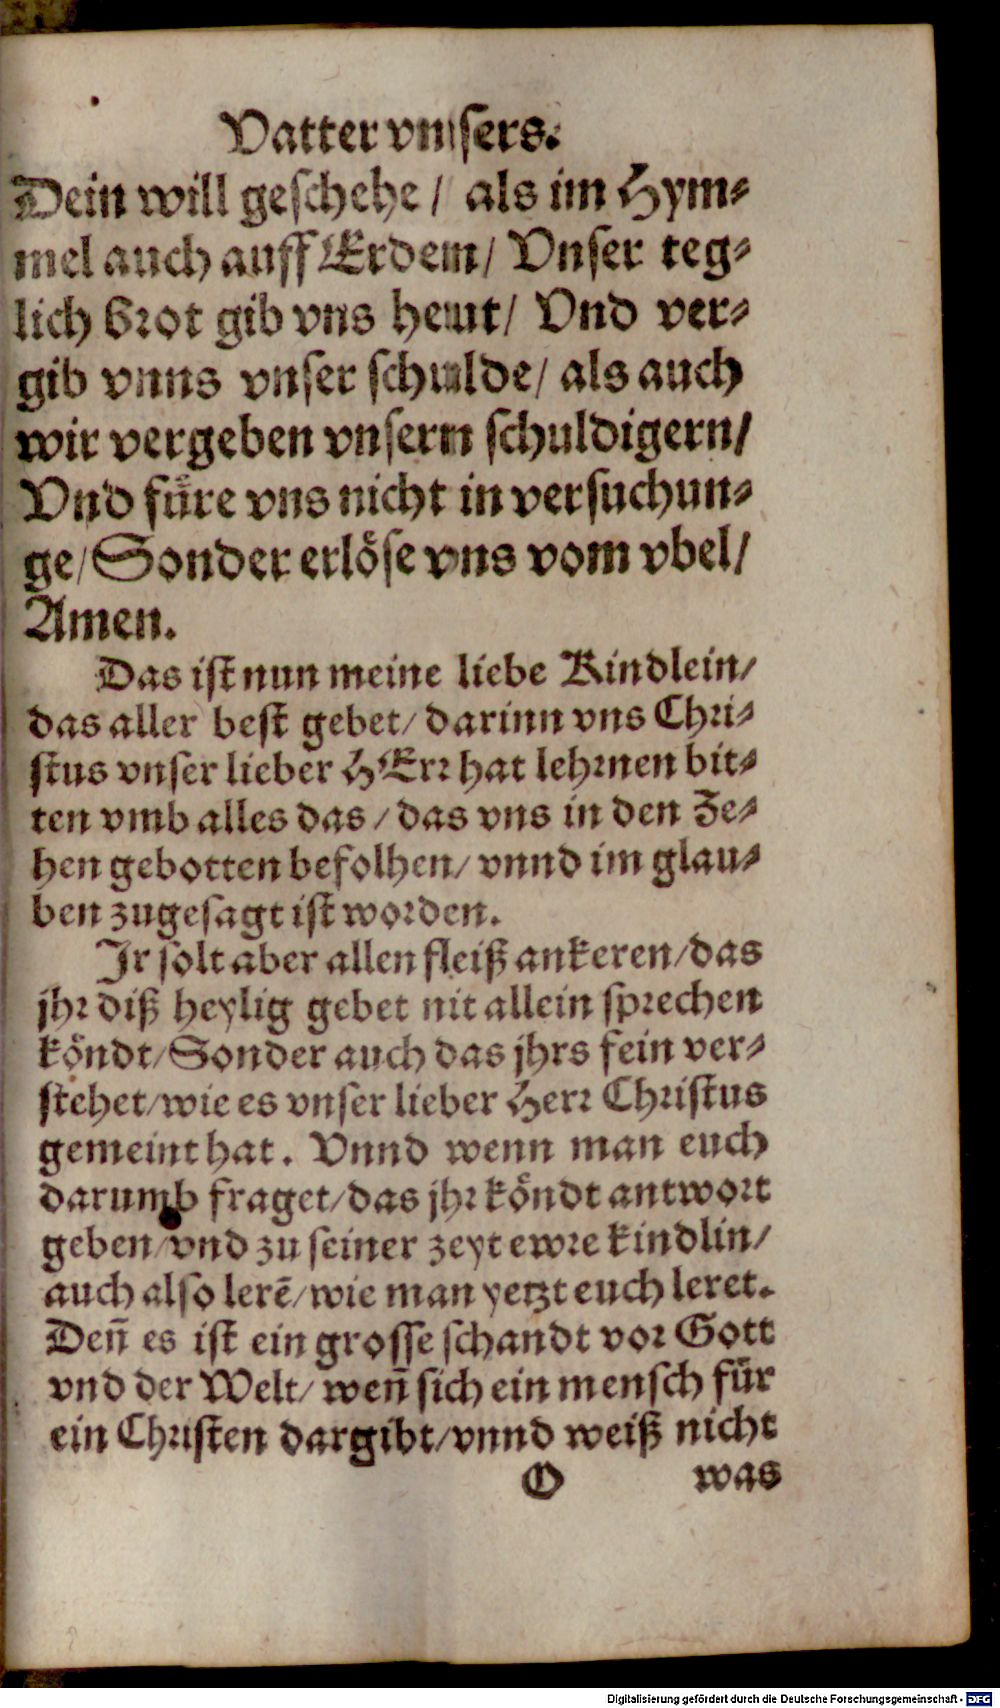 Vatter vnsers.
Dein will geschehe / als im Hym⸗
mel auch auff Erdem / Vnser teg⸗
lich Brot gib vns heut / Vnd ver⸗
gib vnns vnser schulde / als auch
wir vergeben vnsern schuldigern /
Vnd fuͤre vns nicht in versuchun⸗
ge / Sonder erloͤse vns vom vbel /
Amen.
Das ist nun meine liebe Kindlein /
das aller best gebet / darinn vns Chri⸗
stus vnser lieber HErr hat lehrnen bit⸗
ten vmb alles das / das vns in den Ze⸗
hen gebotten befolhen / vnnd im glau⸗
ben zugesagt ist worden.
Jr solt aber allen fleiß ankeren / das
jhr diß heylig gebet nit allein sprechen
koͤndt / Sonder auch das jhrs fein ver⸗
stehet / wie es vnser lieber Herr Christus
gemeint hat. Vnnd wenn man euch
darumb fraget / das jhr koͤndt antwort
geben / vnd zu seiner zeyt ewre kindlin /
auch also lerē / wie man yetzt euch leret.
Den̄ es ist ein grosse schandt vor Gott
vnd der Welt / wen̄ sich ein mensch fuͤr
ein Christen dargibt / vnnd weiß nicht
O was
Digitalisierung gefördert durch die Deutsche Forschungsgemeinschaft - DFG